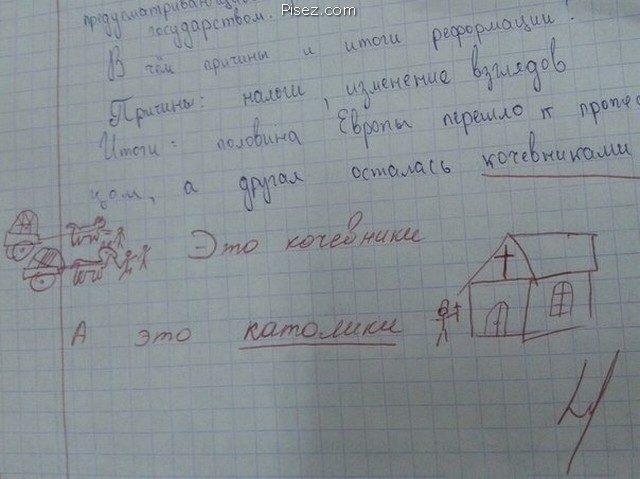 Pisez.com
предусматривающ
государством.
В чём причины и итоги реформации?
Причины: налоги, изменение взглядов
Итоги: половина Европы перешло к протес
цом, а другая осталась кочевниками
Это кочевники
А это католики
4